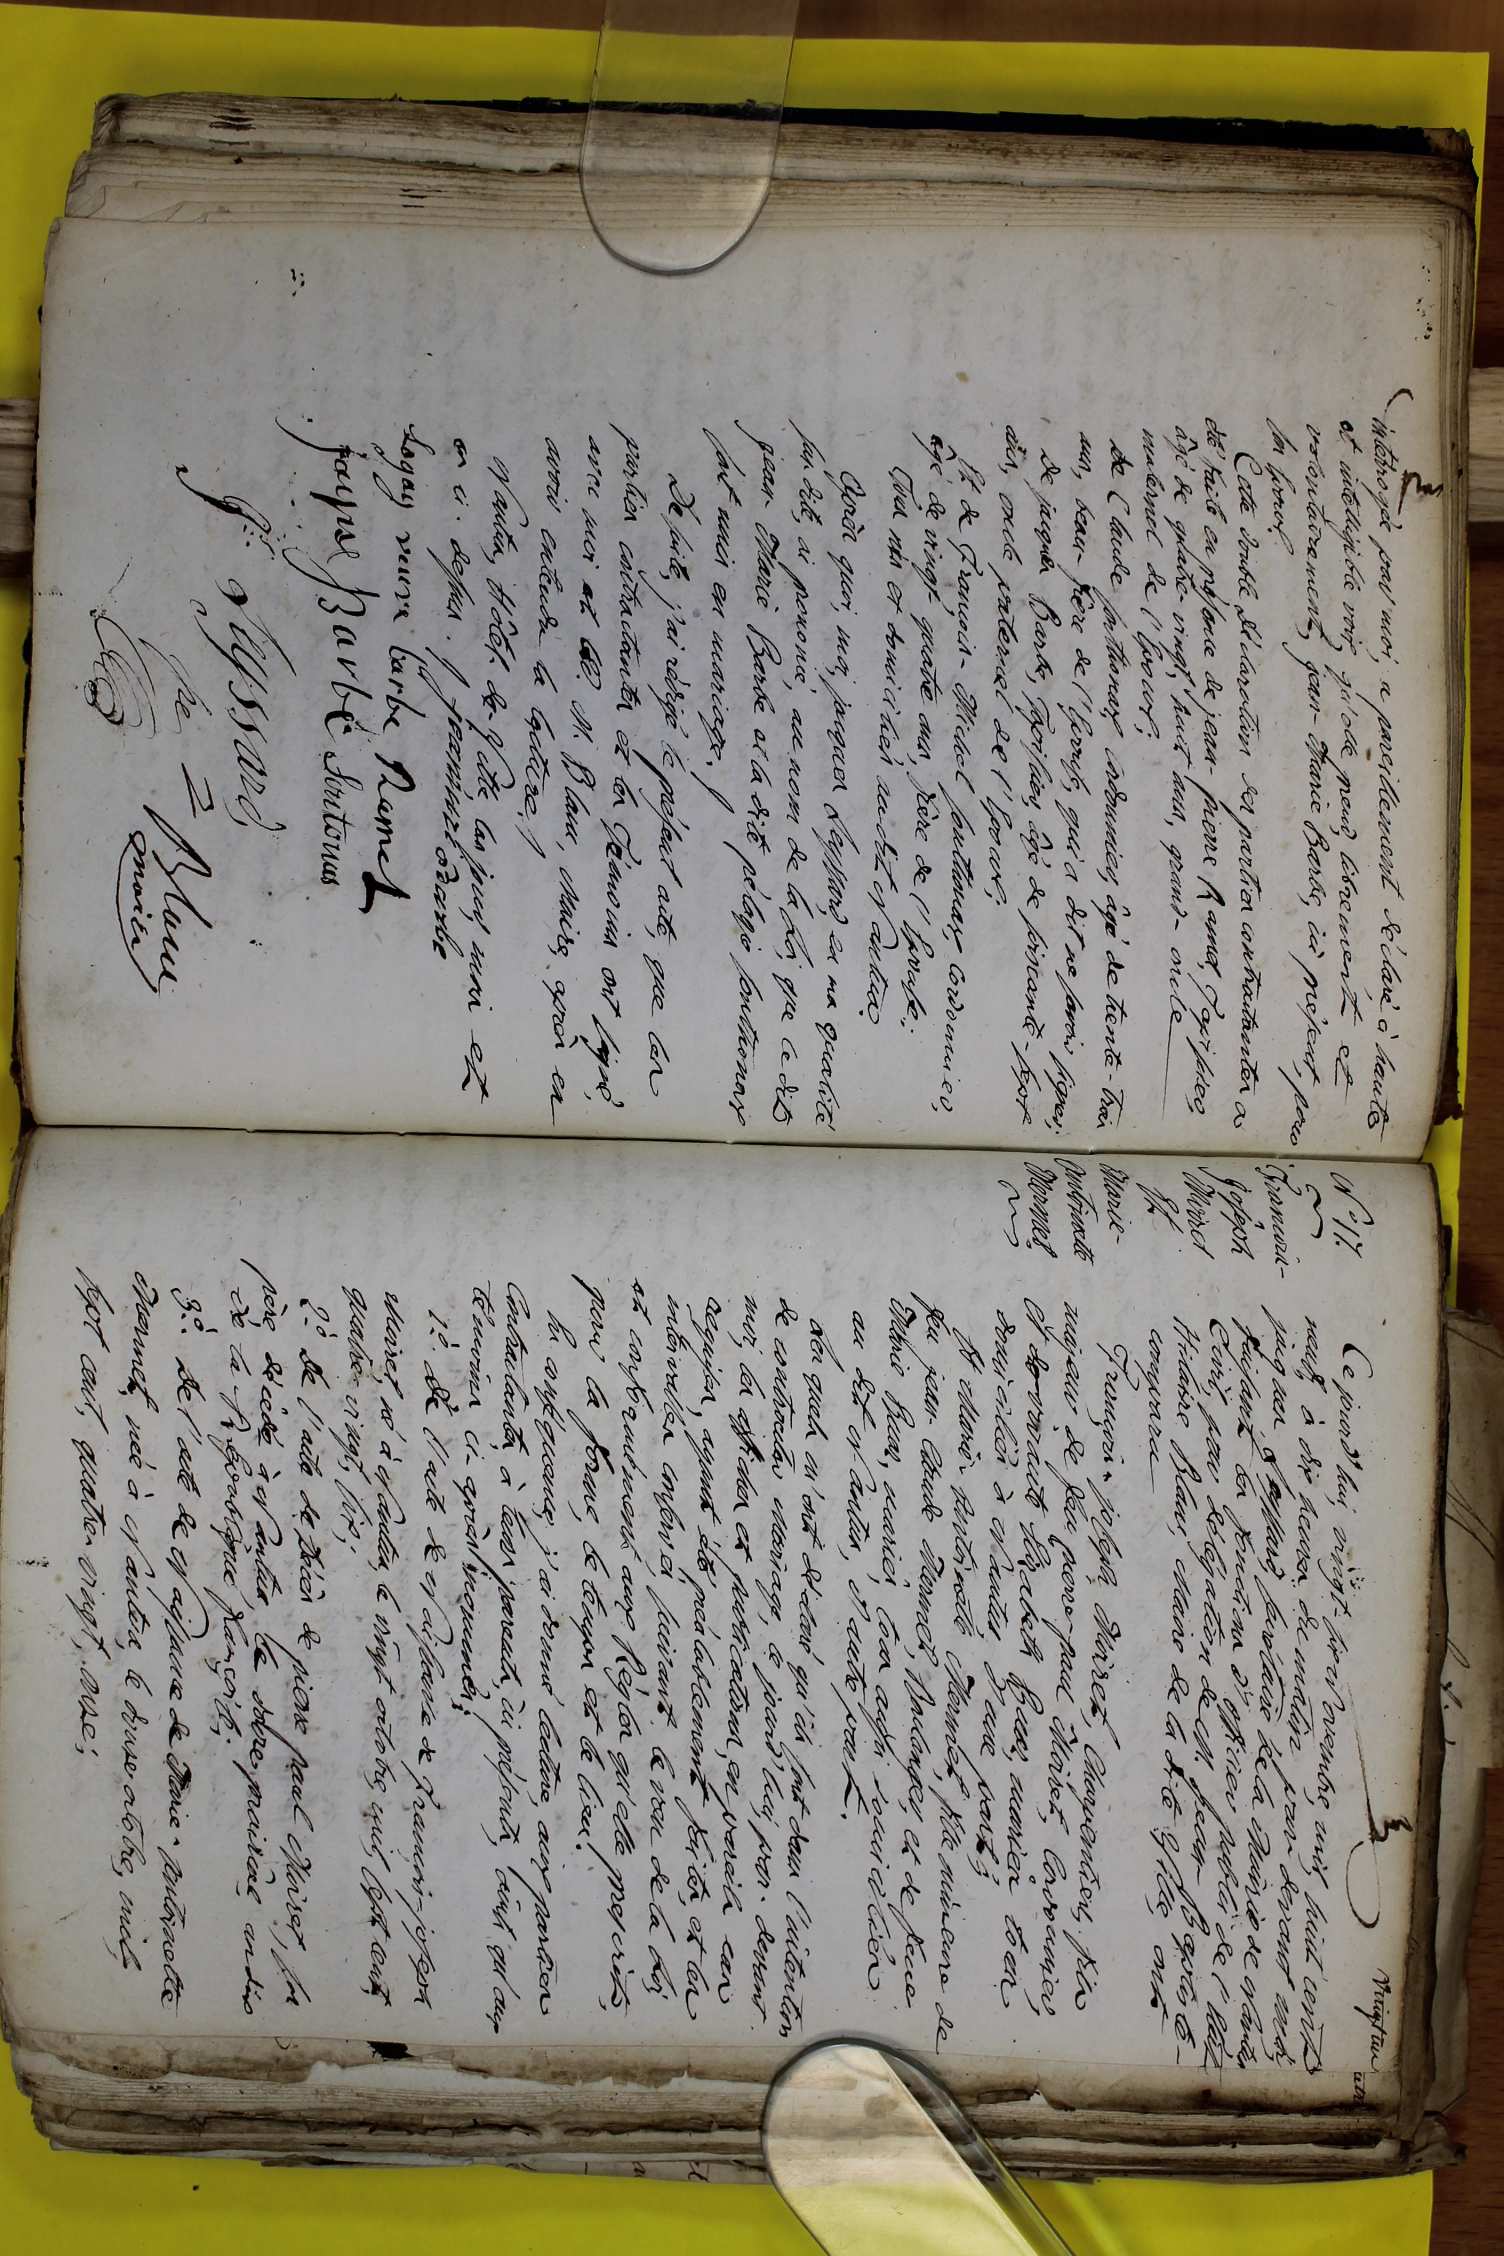 interrogée par moi, a pareillement déclaré à haute
et intelligible voix, qu'elle prend, librement et
volontairement, jean-Marie Barbe, ici présent, pour
son Epoux.
Cette double déclaration des parties contractantes a
été faite en présence de jean-pierre Ramel,
âgé de quatre-vingt-huit ans, grand-oncle
maternel de l'Epoux;
de Claude fonthonax, cordonnier, âgé de trente-trois
ans, beau-frère de l'Epouse, qui a dit ne savoir signer;
de jacques Barbe, âgé de soixante-sept
ans, oncle paternel de l'Epoux;
Et de François-Michel fonthonax, cordonnier,
âgé de vingt-quatre ans, frère de l'Epouse;
Tous nés et domiciliés au dit Nantua.
Après quoi, moi, jacques Leyssard, en ma qualité
sus dite, ai prononcé, au nom de la Loi, que le dit
jean-Marie Barbe et la dite pélagie fonthonax
sont unis en mariage.
De suite, j'ai rédigé le présent acte, que les
parties contractantes et les Témoins ont signé,
avec moi et M. Blanc, Maire, après en
avoir entendu la lecture.
Nantua, Hôtel-de-Ville, les jour, mois et
an ci-dessus. j jeanmarie Barbe
veuve barbe Ramel
Barbe fontonax
Leyssard
Blanc
maire
Vingt un
N° 17.
François-
Joseph
Moiret
Et
Marie-
Antoinette
Mermet
Ce jourd'hui, vingt-six novembre, mil huit cents
neuf, à dix heures du matin, par-devant moi
jacques Leyssard, secrétaire de la Mairie de Nantua
faisant les fonctions d'officier public de l'Etat
Civil, par délégation de M. jean-Baptiste-
Hilaire Blanc, Maire de la dite Ville, ont
comparu
François-joseph Moiret, Charpentier, fils
majeur de feu pierre-paul Moiret, Cordonnier,
et de vivante Elisabeth mariés, tous
domiciliés à Nantua, d'une part;
Et Marie-Antoinette Mermet, fille mineure de
feu jean-Claude Mermet, Boulanger, et de feue
Marie mariés, tous aussi domiciliés
au dit Nantua, d'autre part.
Les quels m'ont déclaré qu'ils sont dans l'intention
de contracter mariage, ce jourd'hui, par-devant
moi; les affiches et publications, en pareils cas
requises, ayant été préalablement faites, et les
intervalles observés, suivant le vœu de la Loi
et conformément aux Règles qu'elle prescrit,
pour la forme, le temps et le lieu.
En conséquence, j'ai donné lecture, aux parties
Contractantes, à leurs parents, ici présents, ainsi qu'aux
témoins ci-après nommés;
1.° De l'acte de Naissance de François-joseph
Moiret, né à Nantua, le vingt octobre, mil sept cent
quatre-vingt-six;
2.° De l'acte de décès de pierre paul Moiret, son
père, décédé à Nantua, le douze prairial an dix
de la République française;
3.° De l'acte de Naissance de Marie-Antoinette
Mermet, née à Nantua, le douze octobre, mil
sept cent, quatre-vingt-onze;